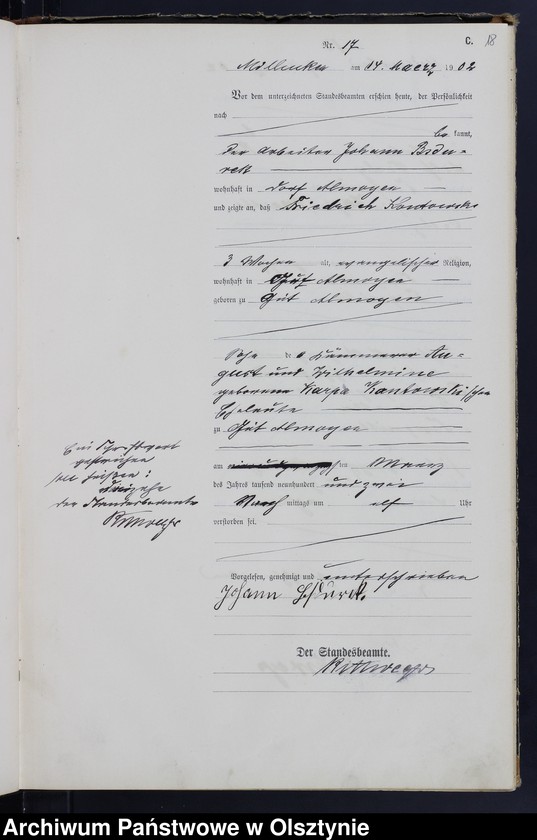 C. 18
Nr. 17
am 14. Maerz 1902
Vor dem unterzeichneten Standesbeamten erschien heute, der Persönlichkeit
nach
be kannt,
der Arbeiter Johann
wohnhaft in Dorf Almoyen
und zeigte an, daß Friedrich
3 Wochen alt, evangelischer Religion,
wohnhaft in Gut Almoyen
geboren zu Gut Almoyen
Sohn de s Kämmerer Au=
gust und Wilhelmine
geborene Karpa Kantowski'schen
Eheleute
zu Gut Almoyen
am ten Maerz
des Jahres tausend neunhundert und zwei
Nach mittags um elf Uhr
verstorben sei.
Ein Schriftwort
gestrichen
soll heißen:
der Standesbeamte
Vorgelesen, genehmigt und unterschrieben
Johann
Der Standesbeamte.
Archiwum Państwowe w Olsztynie